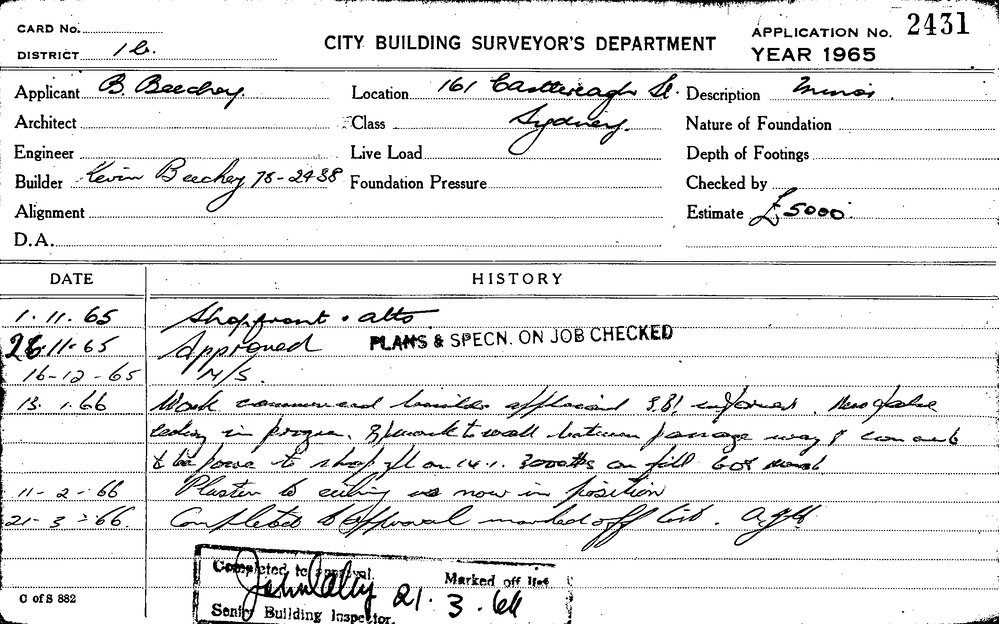 CARD No.
DISTRICT 1b.
CITY BUILDING SURVEYOR'S DEPARTMENT
APPLICATION No. 2431
YEAR 1965
Applicant B. Beechey.
Location 161 Castlereagh St.
Description Minor.
Architect
Class Sydney.
Nature of Foundation
Engineer
Live Load
Depth of Footings
Builder Kevin Beechey 78-2488
Foundation Pressure
Checked by
Alignment
Estimate £5000.
D.A.
DATE HISTORY
1.11.65 Shopfront & alts
26.11.65 Approved PLANS & SPECN. ON JOB CHECKED
16-12-65 N/S.
13.1.66 Work commenced builder informed. New false
in progress. to wall between passage way &
to shop on 14.1. on
11-2-66 Plaster to ceiling is now in position
21-3-66. Completed to approval marked off list.
Completed to approval.
Marked off list
21.3.66
Senior Building Inspector.
C of S 882